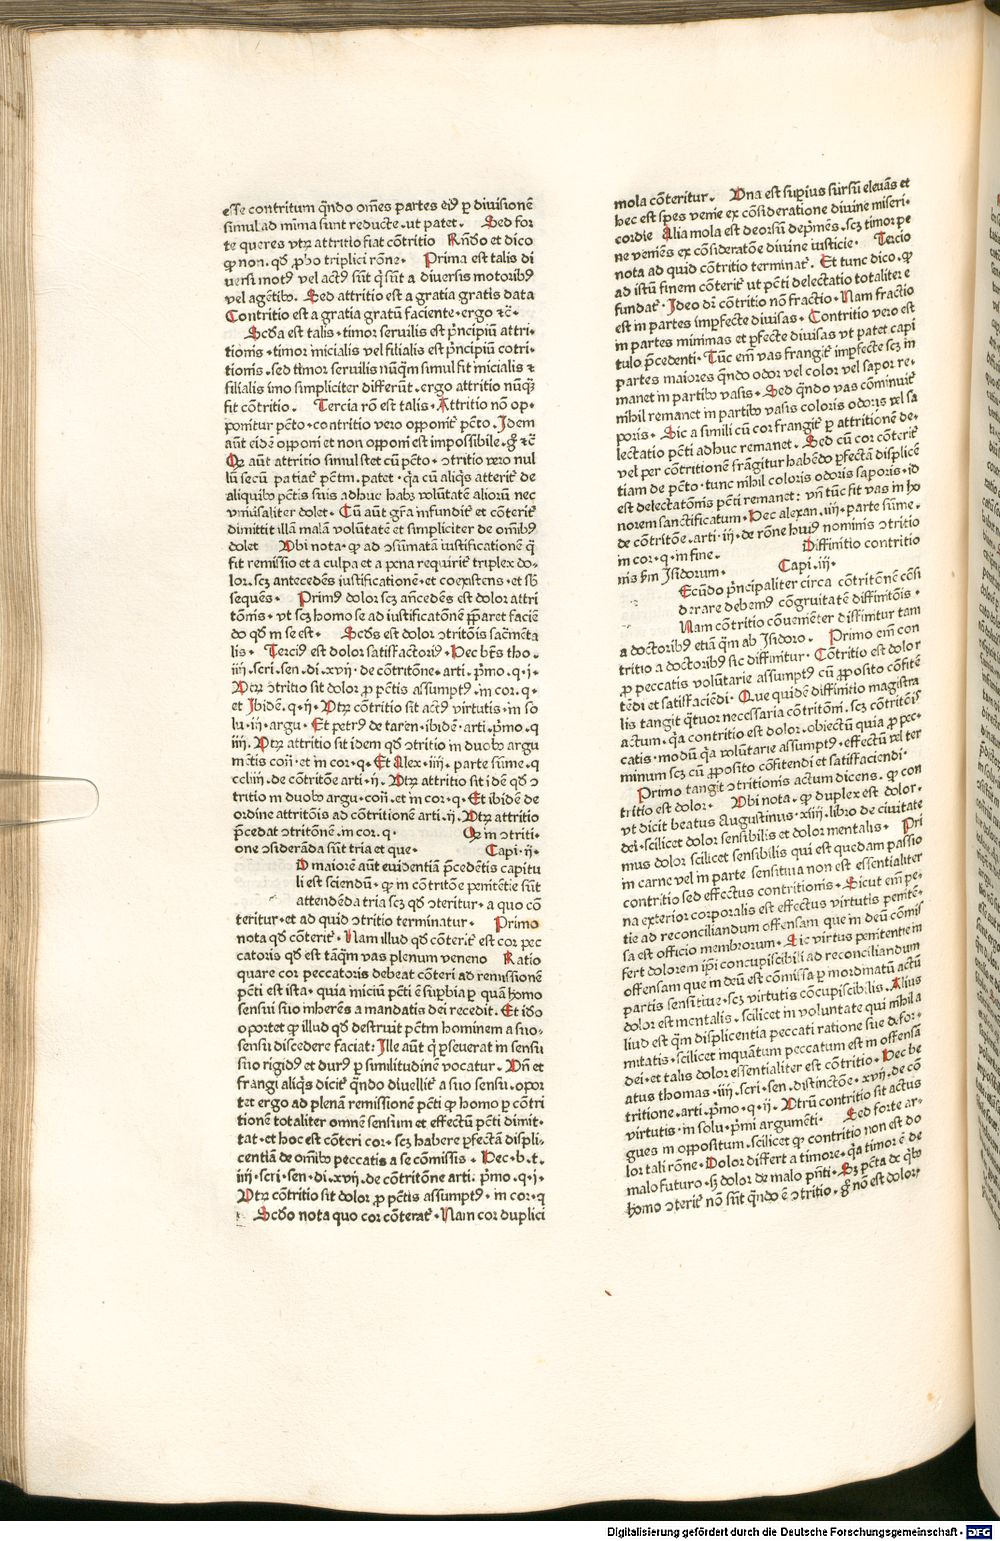 esse contritum qñdo om̃es partes eiꝰ ꝑ diuisionẽ
simul ad mĩma sunt reducte. ut patet. Sed for
te queres vtꝝ attritio fiat cõtritio Rñdo et dico
ꝙ non. qđ ꝓbo triplici rõne. Prima est talis di
uersi motꝰ vel actꝰ sũt q̃ sũt a diuersis motoribꝰ
vel agẽtibꝰ. Sed attritio est a gratia gratis data
Contritio est a gratia gratũ faciente. ergo ⁊c̃.
Scđa est talis. timor seruilis est p̃ncipiũ attri-
tionis. timor inicialis vel filialis est p̃ncipiũ cõtri-
tionis. sed timor seruilis nũq̃m simul fit inicialis ⁊
filialis imo simpliciter differũt. ergo attritio nũq̃
fit cõtritio. Tercia rõ est talis. Attritio nõ op-
ponitur pctõ. contritio vero opponit̃ pctõ. Idem
aũt eidẽ opponi et non opponi est impossibile. g̃ ⁊c̃
Qꝝ aũt attritio simul stet cũ pctõ. ꝯtritio vero nul
lũ secũ patiat̃ pctm̃. patet. q̃a cũ aliq̃s atterit̃ de
aliquibꝰ pctis suis adhuc habꝫ volũtatẽ aliorũ nec
vniuersaliter dolet. Cũ aũt gr̃a infundit̃ et cõterit̃
dimittit illã malã volũtatẽ et simpliciter de om̃ibꝰ
dolet Vbi nota. ꝙ ad ꝯsũmatã iustificationẽ q̃
fit remissio et a culpa et a pena requirit̃ triplex do-
lor. scꝫ antecedẽs iustificationẽ. et coexistens. et sb̃
sequẽs. Primꝰ dolor scꝫ añcedẽs est dolor attri
tõnis. vt scꝫ homo se ad iustificatõnẽ p̃paret faciẽ
do qđ in se est. Scđs est dolor ꝯtritõis sacm̃ta
lis. Terciꝰ est dolor satisfactoriꝰ. Hec bt̃s tho.
iiij. scri. sen. di. xvij. de cõtritõne. arti. p̃mo. q. i.
Vtꝝ ꝯtritio sit dolor ꝓ pctis assumptꝰ. in cor. q.
et Ibidẽ. q. ij. Vtꝝ cõtritio sit actꝰ virtutis. in so
lu. iij. argu. Et petrꝰ de taren. ibidẽ. arti. p̃mo. q
iiij. Vtꝝ attritio sit idem qđ ꝯtritio in duobꝰ argu
mẽtis cõñ. et in cor. q. Et Alex. iiij. parte sum̃e. q
ccliij. de cõtritõne arti. ij. Vtꝝ attritio sit idẽ qđ ꝯ
tritio in duobꝰ argu. cõñ. et in cor. q. Et ibidẽ de
ordine attritõis ad cõtritionẽ arti. ij. Vtꝝ attritio
p̃cedat ꝯtritõnẽ. in cor. q. Qꝝ in ꝯtriti-
one ꝯsiderãda sũt tria et que. Capi. ij.
D maiorẽ aũt euidentiã p̃cedẽtis capitu
li est sciendũ. ꝙ in cõtritõe penitẽtie sũt
attendẽda tria scꝫ qđ ꝯteritur. a quo cõ
teritur. et ad quid ꝯtritio terminatur. Primo
nota qđ cõterit̃. Nam illud qđ cõterit̃ est cor pec
catoris qđ est tãq̃m vas plenum veneno Ratio
quare cor peccatoris debeat cõteri ad remissionẽ
pcti est ista. quia iniciũ pcti ẽ suꝑbia ꝑ quã homo
sensui suo inherẽs a mandatis dei recedit. Et ido
oportet ꝙ illud qđ destruit pctm̃ hominem a suo-
sensu discedere faciat: Ille aũt q̃ ꝑseuerat in sensu
suo rigidꝰ et durꝰ ꝑ similitudinẽ vocatur. Vñ et
frangi aliq̃s dicit̃ qñdo diuellit̃ a suo sensu. opor
tet ergo ad plenã remissionẽ pcti ꝙ homo ꝑ cõtri
tionẽ totaliter omnẽ sensum et effectũ pcti dimit-
tat. et hoc est cõteri cor. scꝫ habere ꝑfectã displi-
centiã de om̃ibꝰ peccatis a se cõmissis. Hec. b. t.
iiij. scri. sen. di. xvij. de cõtritõne arti. p̃mo. q. i.
Vtꝝ cõtritio sit dolor ꝓ pctis assumptꝰ. in cor. q
Scđo nota quo cor cõterat̃. Nam cor duplici
mola cõteritur. Vna est suꝑius sũrsũ eleuãs et
hec est spes venie ex cõsideratione diuine miseri-
cordie Alia mola est deorsũ dep̃mẽs. scꝫ timor pe
ne veniẽs ex cõsideratõe diuine iusticie. Tercio
nota ad quid cõtritio terminat̃. Et tunc dico. ꝙ
ad istũ finem cõterit̃ ut pcti delectatio totaliter e
fundat̃. Ideo dr̃ cõtritio nõ fractio. Nam fractio
est in partes imꝑfecte diuisas. Contritio vero est
in partes minimas et ꝑfecte diuisas vt patet capi
tulo p̃cedenti. Tũc em̃ vas frangit̃ imꝑfecte scꝫ in
partes maiores qñdo odor vel color vel sapor re-
manet in partibꝰ vasis. Sed qñdo vas cõminuit̃
nihil remanet in partibꝰ vasis coloris odoris vel sa
poris. Sic a simili cũ cor frangit̃ ꝑ attritionẽ de-
lectatio pcti adhuc remanet. Sed cũ cor cõterit̃
vel per cõtritionẽ frãngitur habẽdo ꝑfectã displicẽ
tiam de pctõ. tunc nihil coloris odoris saporis. id
est delectatõnis pcti remanet: vñ tũc fit vas in ho
norem sanctificatum. Hec alexan. iiij. parte sũme.
de cõtritõe. arti. iij. de rõne huiꝰ nominis ꝯtritio
in cor. q. in fine. Diffinitio contritio
nis s̃m Isidorum. Capi. iij.
Ecũdo p̃ncipaliter circa cõtritõnẽ cõsi
derare debemꝰ cõgruitatẽ diffinitõis.
Nam cõtritio conuemẽter diffinitur tam
a doctoribꝰ etiã q̃m ab Isidoro. Primo em̃ con
tritio a doctoribꝰ sic diffinitur. Contritio est dolor
ꝓ peccatis voluntarie assumptꝰ cũ ꝓposito cõfitẽ
tẽdi et satisfaciẽdi. Que quidẽ diffinitio magistra
lis tangit q̃tuor necessaria cõtritõni. scꝫ cõtritẽis
actum. q̃a contritio est dolor. obiectũ quia ꝓ pec-
catis. modũ q̃a volũtarie assumptꝰ. effectũ vel ter
minum scꝫ cũ ꝓposito cõfitendi et satisfaciendi.
Primo tangit ꝯtritionis actum dicens. ꝙ con
tritio est dolor. Vbi nota. ꝙ duplex est dolor.
vt dicit beatus Augustinus. xiiij. libro de ciuitate
dei. scilicet dolor sensibilis et dolor mentalis. Pri
mus dolor scilicet sensibilis qui est quedam passio
in carne vel in parte sensitiua non est essentialiter
contritio sed effectus contritionis. Sicut em̃ pe-
na exterior corporalis est effectus virtutis penitẽ-
tie ad reconciliandum offensam que in deũ cõmis
sa est officio membrorum. Sic virtus penitentie in
fert dolorem ip̃i concupiscibili ad reconciliandum
offensam que in deũ est cõmissa ꝑ inordinatũ actũ
partis sensitiue. scꝫ virtutis cõcupiscibilis. Alius
dolor est mentalis. scilicet in voluntate qui nihil a
liud est q̃m displicentia peccati ratione sue defor-
mitatis. scilicet inquãtum peccatum est in offensã
dei. et talis dolor essentialiter est cõtritio. Hec be
atus thomas. iiij. scri. sen. distinctõe. xvij. de cõ
tritione. arti. p̃mo. q. ij. Vtrũ contritio sit actus
virtutis. in solu. p̃mi argumẽti. Sed forte ar-
gues in oppositum. scilicet ꝙ contritio non est do
lor tali rõne. Dolor differt a timore. q̃a timor ẽ de
malo futuro. sꝫ dolor de malo pñti. Sꝫ pctã de q̃bꝰ
homo ꝯterit̃ nõ sũt qñdo ẽ ꝯtritio. g̃ nõ est dolor.
Digitalisierung gefördert durch die Deutsche Forschungsgemeinschaft - DFG